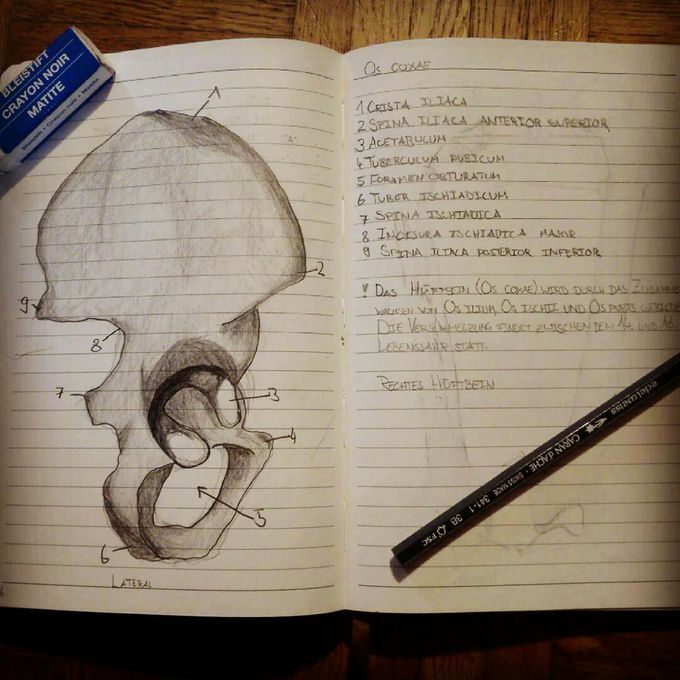 BLEISTIFT
CRAYON NOIR
MATITE
1
2
3
4
5
6
7
8
9
LATERAL
OS COXAE
1 CRISTA ILIACA
2 SPINA ILIACA ANTERIOR SUPERIOR
3 ACETABULUM
4 TUBERCULUM PUBICUM
5 FORAMEN OBTURATUM
6 TUBER ISCHIADICUM
7 SPINA ISCHIADICA
8 INCISURA ISCHIADICA MAJOR
9 SPINA ILIACA POSTERIOR INFERIOR
! DAS HÜFTBEIN (OS COXAE) WIRD DURCH DAS ZUSAMM
WACHSEN VON OS ILIUM, OS ISCHII UND OS PUBIS GEBILDE
DIE VERSCHMELZUNG FINDET ZWISCHEN DEM UND
LEBENSJAHR STATT.
RECHTES HÜFTBEIN
edelweiss CARAN d'ACHE · SWISS MADE 341-1 3B FSC